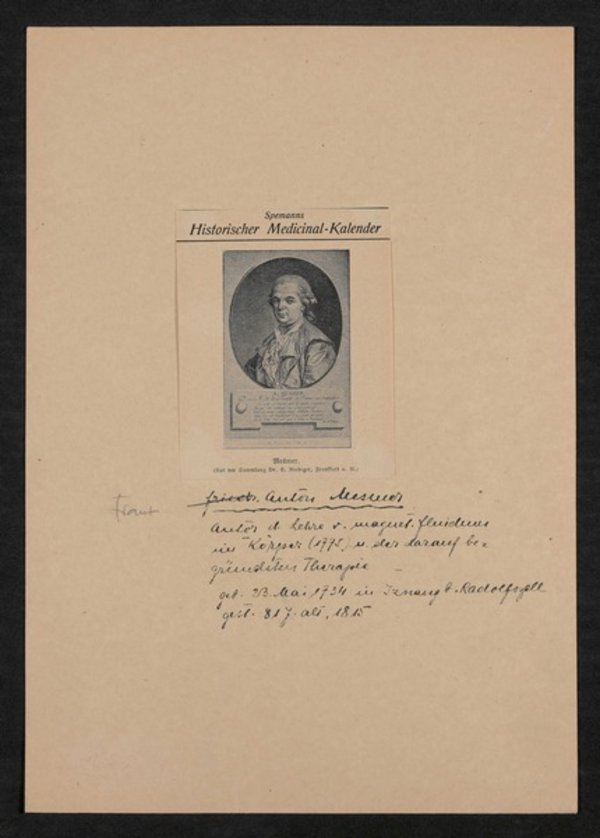 Spemanns
Historischer Medicinal-Kalender
A. MESMER
Mesmer.
(Aus der Sammlung Dr. E. Rediger, Frankfurt a. M.)
Franz
Friedr. Anton Mesmer
Autor d. Lehre v. magnet. Fluidum
im Körper (1775) u. der darauf be-
gründeten Therapie
geb. 23. Mai 1734 in Iznang b. Radolfszell
gest. 81 J. alt, 1815